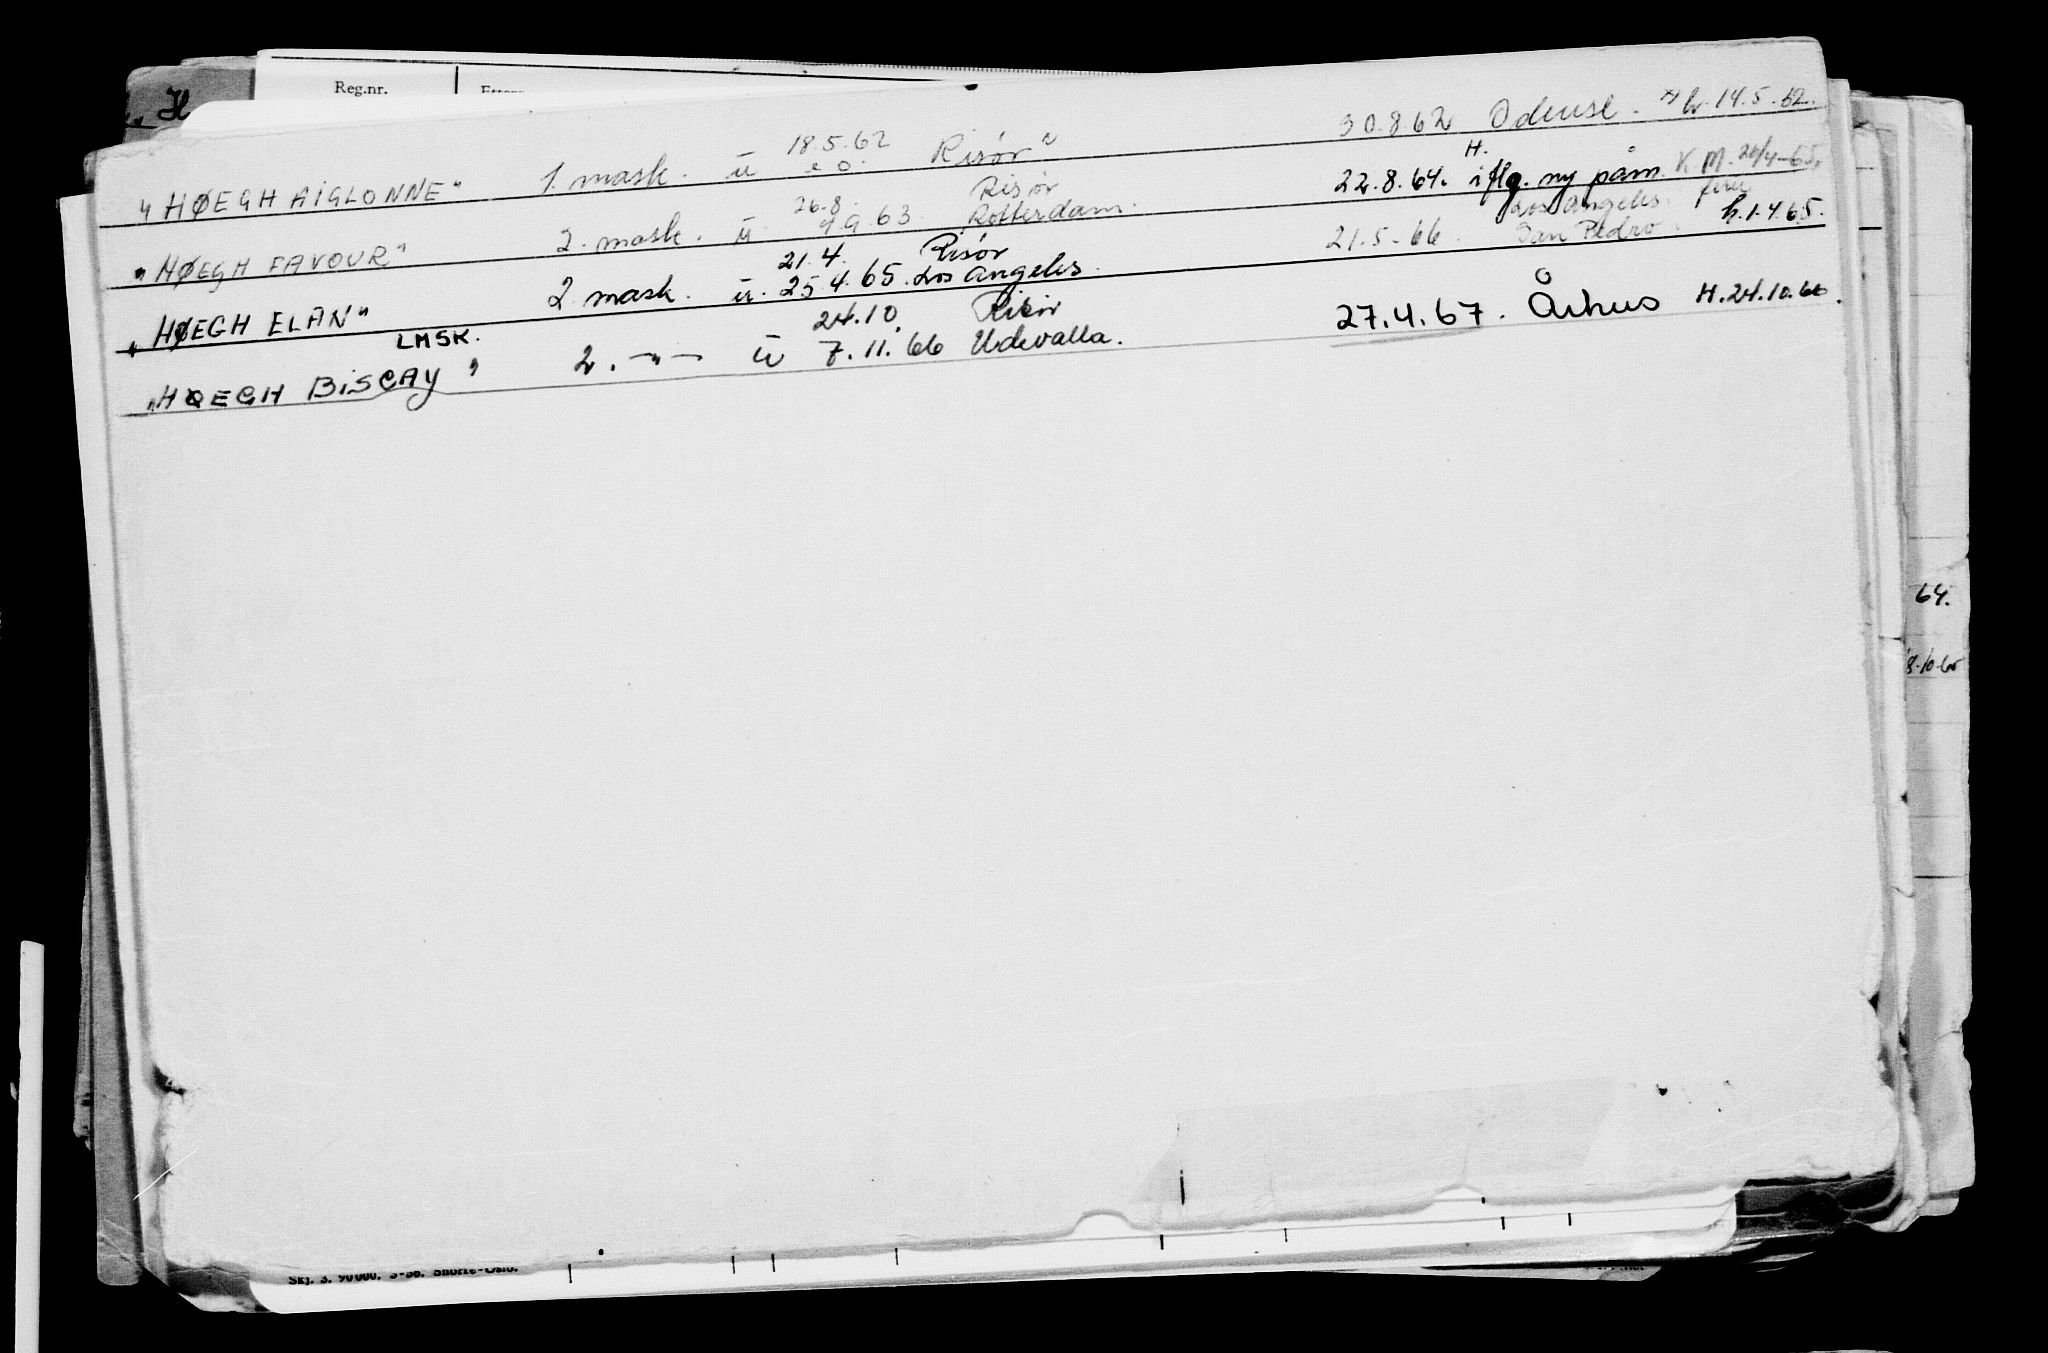 Reg.nr.
18.5.62 30.8.62 Odense. x) h. 14.5.62.
„HØEGH AIGLONNE" 1. mask. ü e.o. Risör"
26.8. Risör 22.8.64. H. iflg. ny påm. K M. 20/4-65.
„HØEGH FAVOUR" 2. mask. ü. 9.9.63. Rotterdam.
21.4. Risör 21.5.66. Los Angeles. San Pedro h.1.4.65.
„HØEGH ELAN" 2 mask. ü. 25.4.65. Los Angeles.
LMSK. 24.10. Risör 27.4.67. Århus H.24.10.66.
„HØEGH BISCAY" 2. -"- ü 7.11.66 Udevalla.
64.
Skj. 3. 90000.